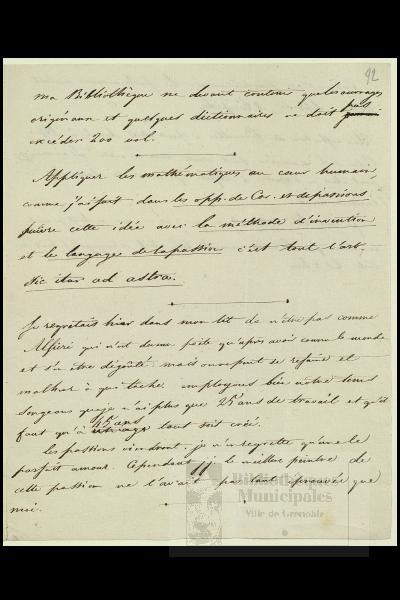 92
ma Bibliothèque ne devant contenir que les ouvrages
originaux et quelques dictionnaires ne doit pas
excéder 200 vol.
Appliquer les mathématiques au cœur humain,
comme j'ai fait dans les opp. de Car. et de passions
suivre cette idée avec la méthode d'invention
et le langage de la passion c'est tout l'art.
Sic itur ad astra.
Je regrettais hier dans mon lit de n'être pas comme
Alfieri qui n'est devenu poète qu'après avoir connu le monde
et s'en être dégoûté. mais on ne peut se refaire et
malheur à qui tâche. employons bien notre tems
songeons que je n'ai plus que 25 ans de travail et qu'il
faut qu'à 45 ans tout soit créé.
les passions viendront. je n'en regrette qu'une le
parfait amour. Cependant JJ le meilleur peintre de
cette passion ne l'avait pas tant éprouvée que
moi.
Bibliothèques
Municipales
Ville de Grenoble